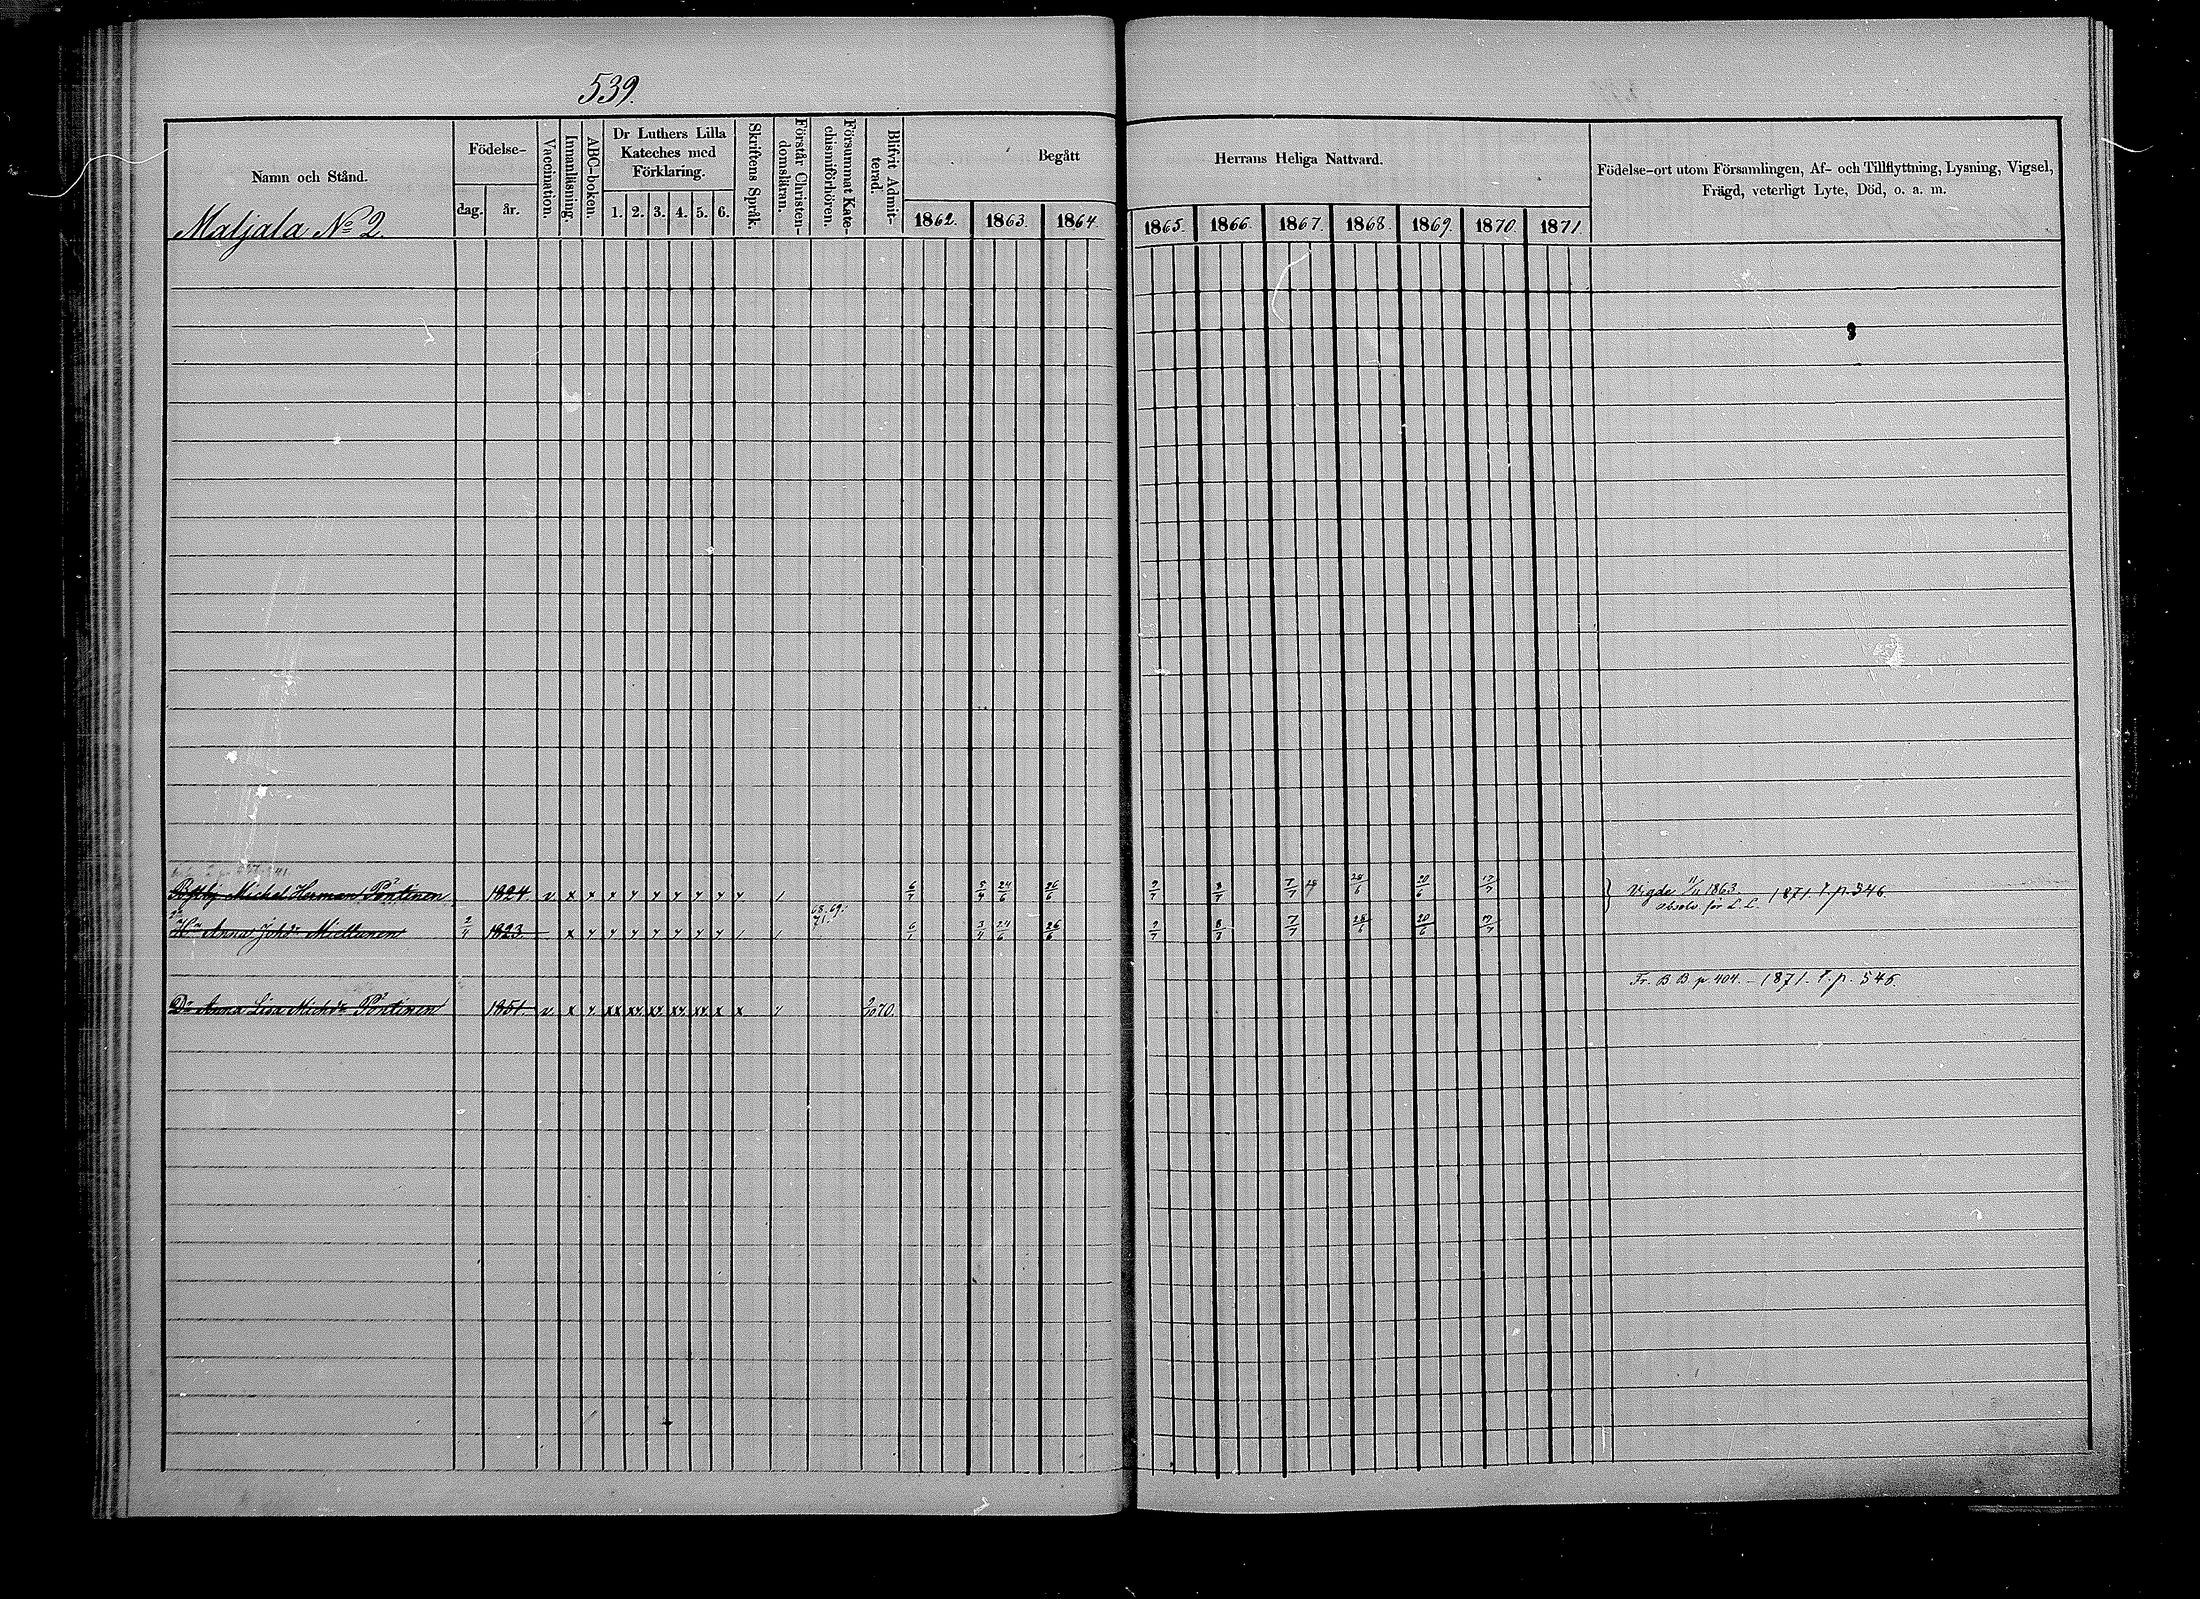 539.
Namn och Stånd.
Födelse-
dag.
år.
Vaccination.
Innanläsning.
ABC-boken.
Dr Luthers Lilla
Kateches med
Förklaring.
1. 2. 3. 4. 5. 6.
Skriftens Språk.
Förstår Christen-
domsläran.
Försummat Kate-
chismiförhören.
Blifvit Admit-
terad.
Begått
Herrans Heliga Nattvard.
1862. 1863. 1864.
1865. 1866. 1867. 1868. 1869. 1870. 1871.
Födelse-ort utom Församlingen, Af- och Tillflyttning, Lysning, Vigsel,
Frägd, veterligt Lyte, Död, o. a. m.
Maljala No 2.
Michel Herman Pöntinen 1824. v x x x y y y y y y / 6/7 24/6 26/6 9/7 8/7 7/7 28/6 20/6 17/7 Vigde 11/11 1863. 1871. t. p. 546.
Absolv. för L. L.
68. 69.
71.
Hu Anna Johdr Miettunen 2/1 1823. x y y y y y y y / / 6/7 3/4 24/6 26/6 9/7 8/7 7/7 28/6 20/6 17/7
Fr. B. B. p. 404. - 1871. t. p. 546.
Dr Anna Lisa Michdr Pöntinen 1851. v x y xx xy xy xy xy x x y 9/10 70.